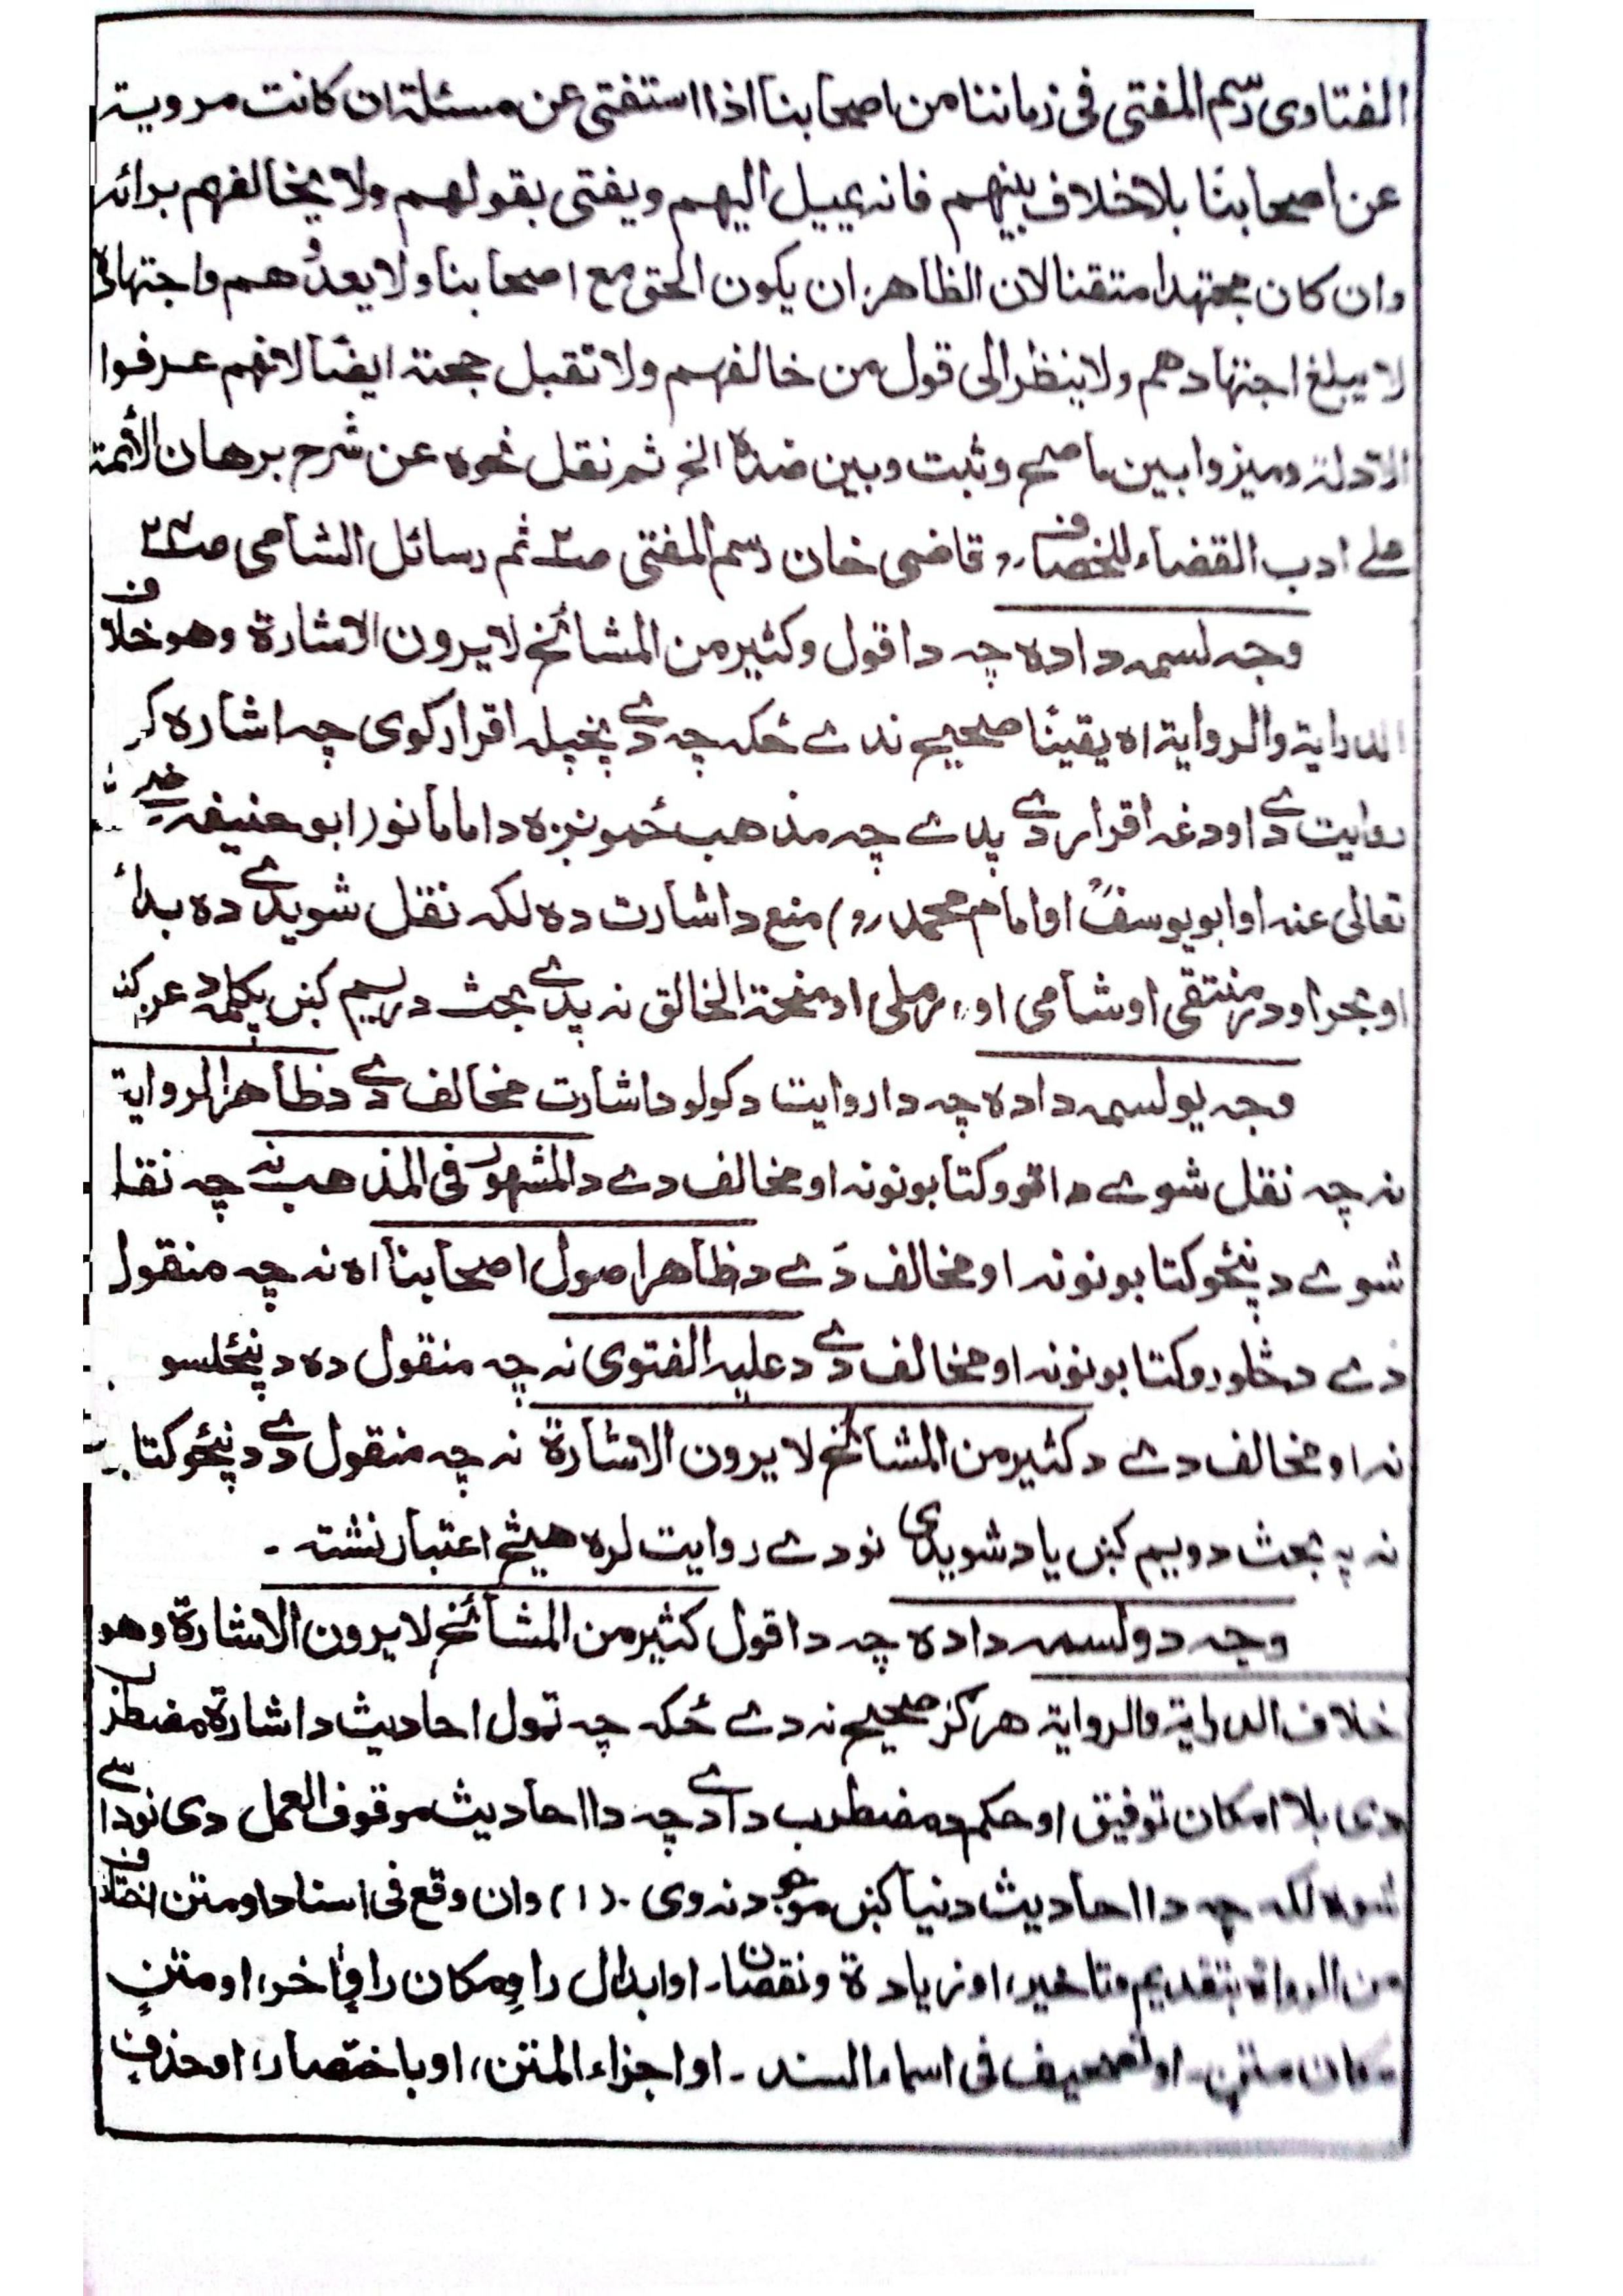 الفتاوى رسم المفتى فى زماننا من اصحابنا اذا استفتى عن مسئلة ان كانت مروية
عن اصحابنا بلا خلاف بينهم فانه يميل اليهم ويفتى بقولهم ولا يخالفهم برائه
وان كان مجتهدا متقنا لان الظاهر ان يكون الحق مع اصحابنا ولا يعدوهم واجتهاده
لا يبلغ اجتهادهم ولا ينظر الى قول من خالفهم ولا تقبل حجته ايضًا لانهم عرفوا
الادلة وميزوا بين ما صح وثبت وبين ضده الخ ثم نقل نحوه عن شرح برهان الأئمة
على ادب القضاء للخصاف قاضى خان رسم المفتى ص٢ ثم رسائل الشامى ص
وجه لسمه داده چه دا قول وكثير من المشائخ لا يرون الاشارة وهو خلاف
الدراية والرواية اه يقينًا صحيح ندے ځكه چه دے پخپله اقرار كوى چه اشاره
روايت دے او دغه اقرار دے پدے چه مذهب ځمونږه دامامانو ابو حنيفه
تعالى عنه او ابويوسفؒ او امام محمد رح) منع داشارت ده لكه نقل شويدے ده
او بحر او در منتقى او شامى او رملى او منحة الخالق نه پدے بحث دريم كښ پكلمه د
وجه يولسمه داده چه دا روايت دكولو داشارت مخالف دے دظاهر الرواية
نه چه نقل شوے داتو وكتابونونه او مخالف دے دالمشهور فى المذهب نه چه نقل
شوے دپنځو كتابونونه او مخالف دَے دظاهر اصول اصحابنا اه نه چه منقول
دے دڅلورو كتابونونه او مخالف دے دعليه الفتوى نه چه منقول ده دپنځلسو
نه او مخالف دے دكثير من المشائخ لا يرون الاشارة نه چه منقول دے دپنځو كتا
نه په بحث دويم كښ ياد شويدى نو دے روايت لره هيڅ اعتبار نشته ۔
وجه دولسمه داده چه دا قول كثير من المشائخ لا يرون الاشارة وهو
خلاف الدراية والرواية هرگز صحيح نه دے ځكه چه ټول احاديث داشارة مضطرب
دى بلا امكان توفيق او حكم دمضطرب دادے چه دا احاديث موقوف العمل دى نو داسے
شوه لكه چه دا احاديث دنيا كښ موجود نه وى ۔ (١) وان وقع فى اسناد او متن اختلاف
من الرواة بتقديم وتاخير، او زيادة ونقصان۔ او ابدال راو مكان راوٍ اخر، او متنٍ
مكان متنٍ۔ او تصحيف فى اسماء السند۔ او اجزاء المتن، او باختصار، او حذفٍ